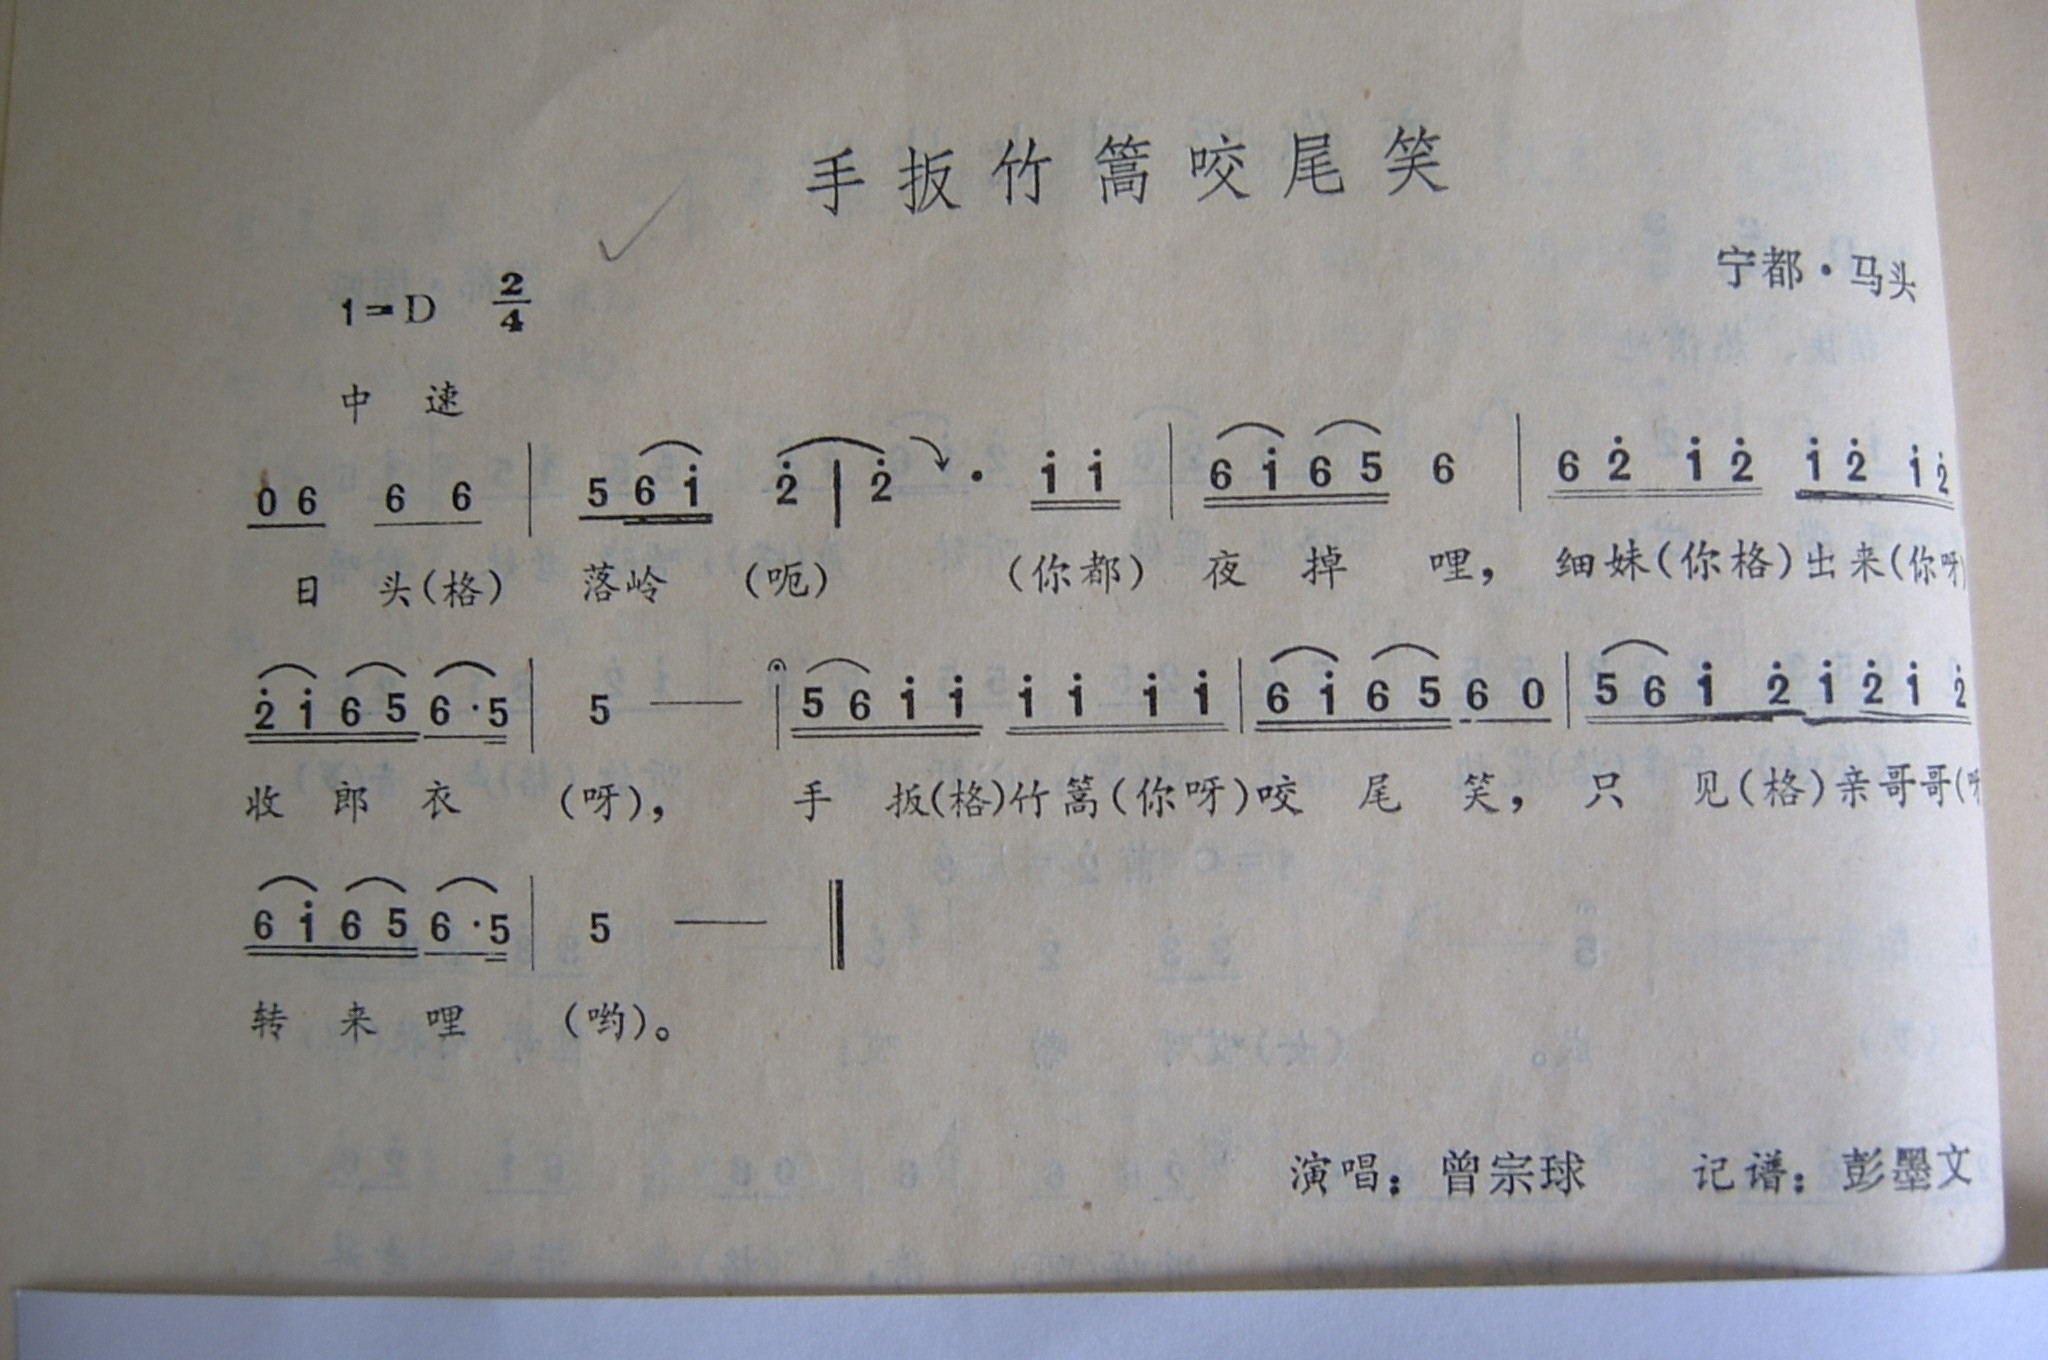 手扳竹篙咬尾笑
宁都·马头
1=D 2/4
中速
0 6 6 6 | 5 6 i 2̇ | 2̇ · i i | 6 i 6 5 6 | 6 2̇ i 2̇ i 2̇ i 2̇
日 头(格) 落岭 (呃) (你都) 夜 掉 哩, 细妹(你格)出来(你呀)
2̇ i 6 5 6 · 5 | 5 — | 5 6 i i i i i i | 6 i 6 5 6 0 | 5 6 i 2̇ i 2̇ i 2̇
收 郎 衣 (呀), 手 扳(格)竹篙(你呀)咬 尾 笑, 只 见(格)亲哥哥(呀
6 i 6 5 6 · 5 | 5 — ‖
转 来 哩 (哟)。
演唱:曾宗球 记谱:彭墨文